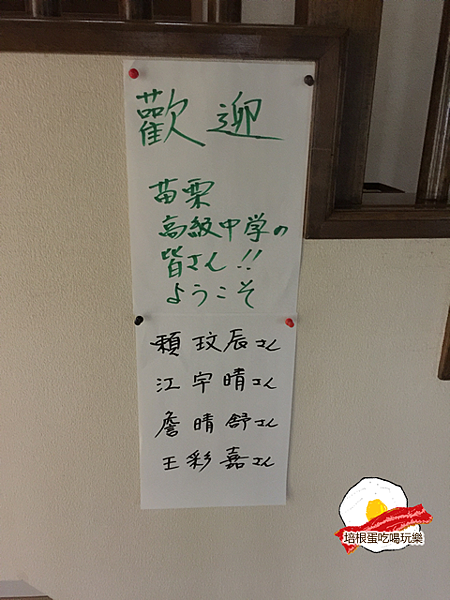 歡迎
苗栗
高級中学の
皆さん!!
ようこそ
賴玟辰さん
江宇晴さん
詹晴舒さん
王彩嘉さん
培根蛋吃喝玩樂